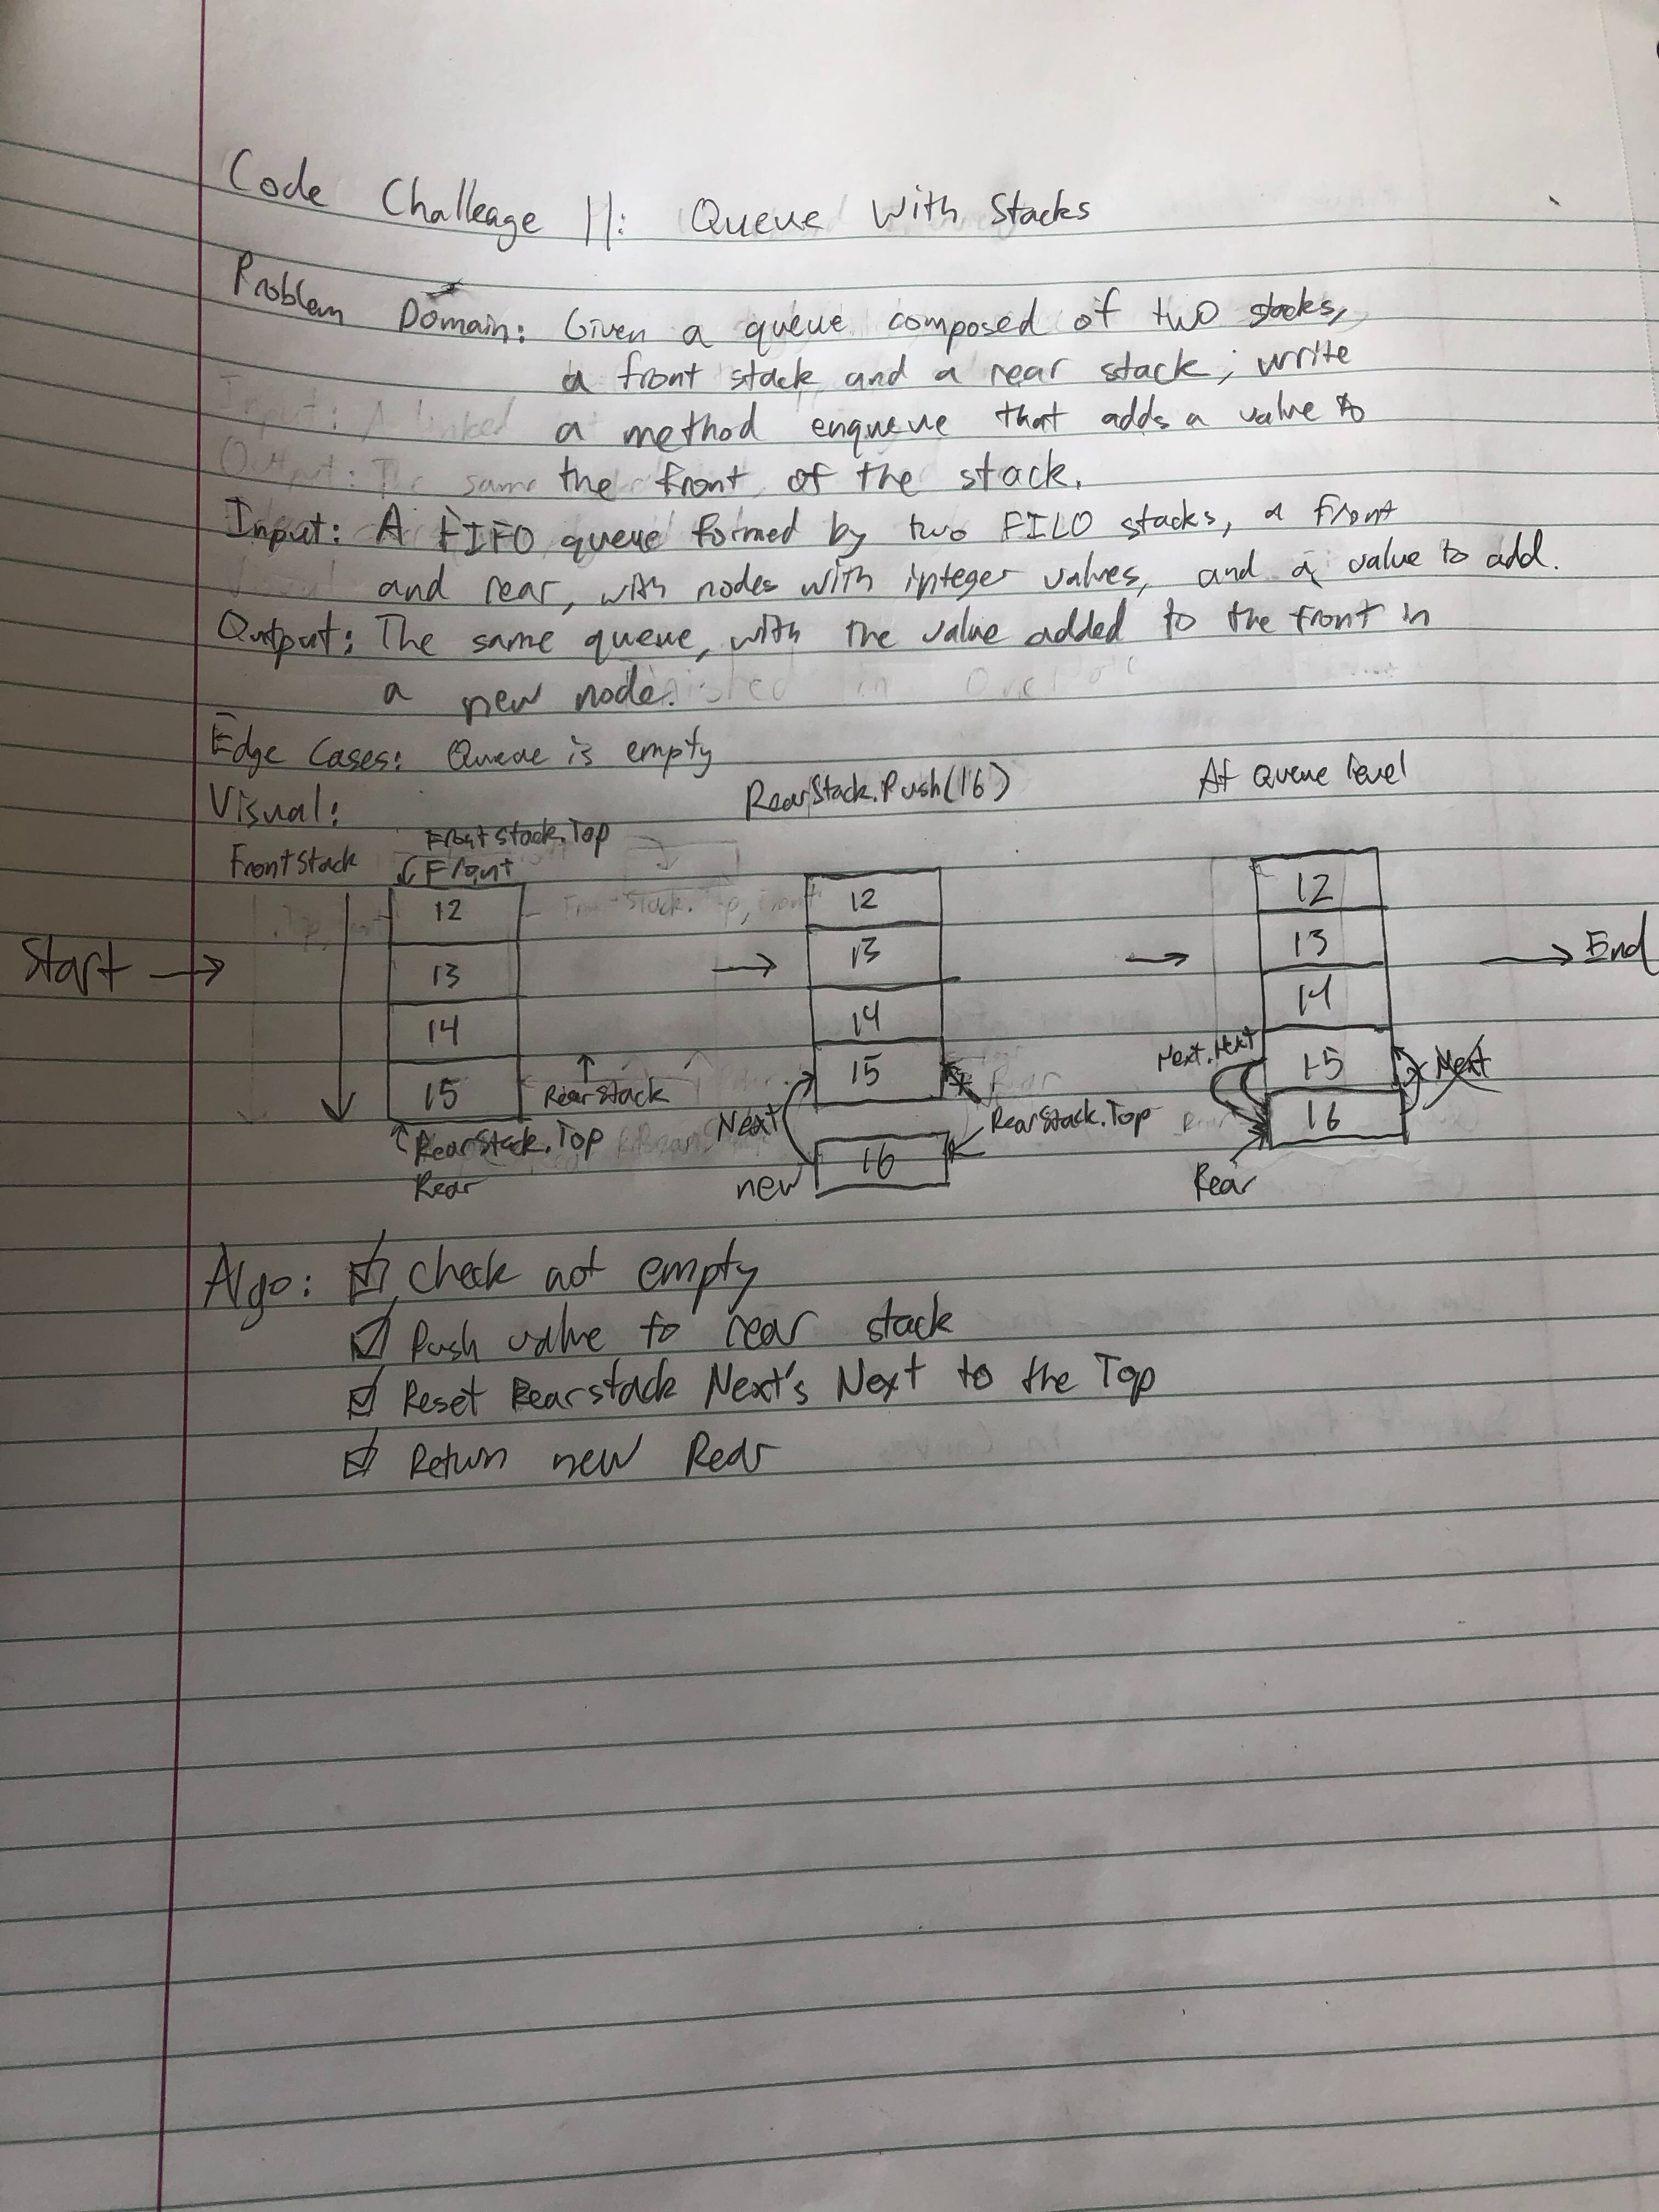 Code Challenge 11: Queue With Stacks
Problem Domain: Given a queue composed of two stacks,
a front stack and a rear stack; write
a method enqueue that adds a value to
the front of the stack.
Input: A FIFO queue formed by two FILO stacks, a front
and rear, with nodes with integer values, and a value to add.
Output: The same queue, with the value added to the front in
a new node.
Edge Cases: Queue is empty
Visual:
RearStack.Push(16)
At Queue level
FrontStack
FrontStack.Top
Front
Start
12
13
14
15
RearStack
RearStack.Top
Rear
12
13
14
15
Next
new
16
RearStack.Top
12
13
14
15
16
Next.Next
Next
Rear
End
Algo: Check not empty
Push value to rear stack
Reset Rearstack Next's Next to the Top
Return new Rear